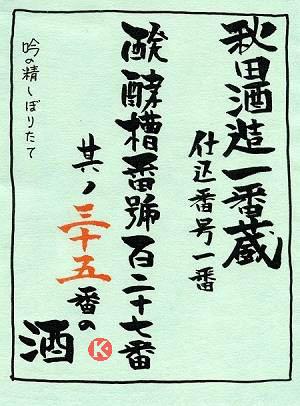 秋田酒造一番蔵
仕込番号一番
醗酵槽番號百二十七番
其ノ三十五番の
酒
吟の精しぼりたて
K